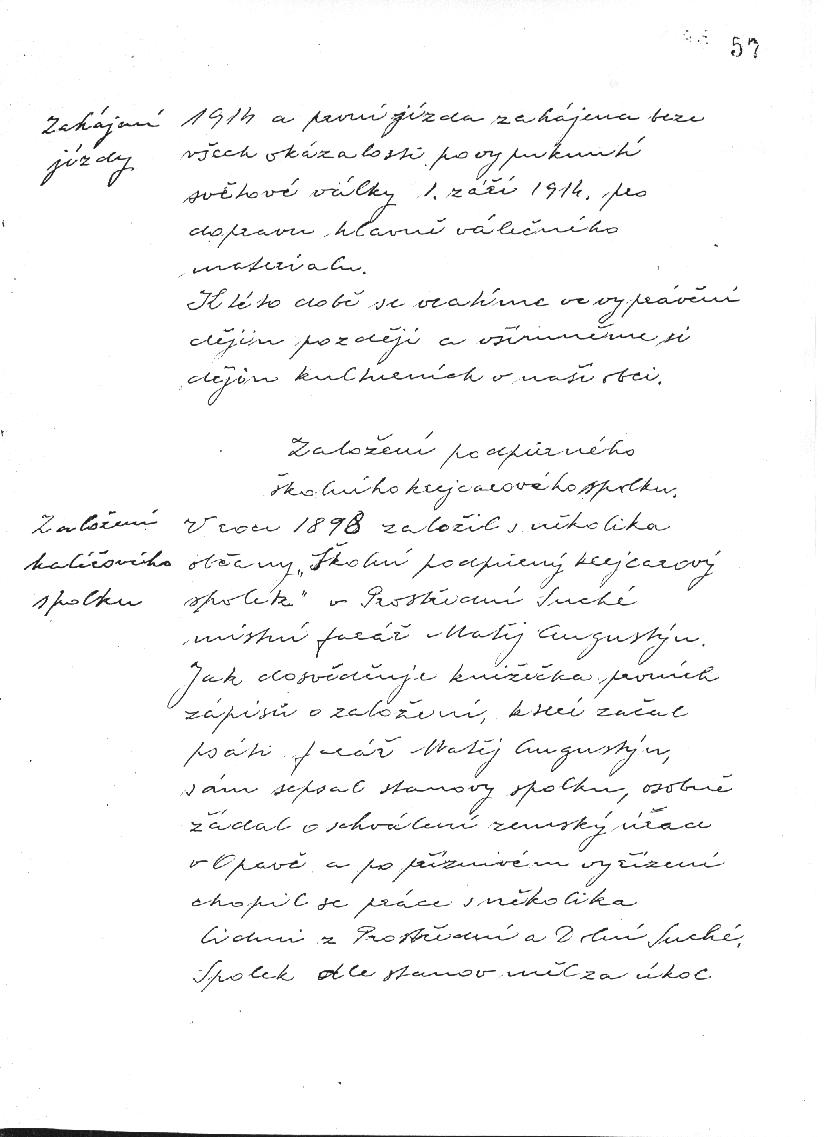 57
Zahájení
jízdy
1914 a první jízda zahájena beze
všech okázalostí po vypuknutí
světové války 1. září 1914. pro
dopravu hlavně válečného
materialu.
K této době se vrátíme ve vyprávění
dějin později a všimněme si
dějin kulturních v naší obci.
Založení podpůrného
školního krejcarového spolku.
Založení
halířového
spolku
V roce 1898 založil s několika
občany „Školní podpůrný krejcarový
spolek" v Prostřední Suché
místní farář Matěj Augustýn.
Jak dosvědčuje knížečka prvních
zápisů o založení, kterí začal
psáti farář Matěj Augustýn,
sám sepsal stanovy spolku, osobně
žádal o schválení zemský úřad
v Opavě a po příznivém vyřízení
chopil se práce s několika
lidmi z Prostřední a Dolní Suché.
Spolek dle stanov měl za úkol